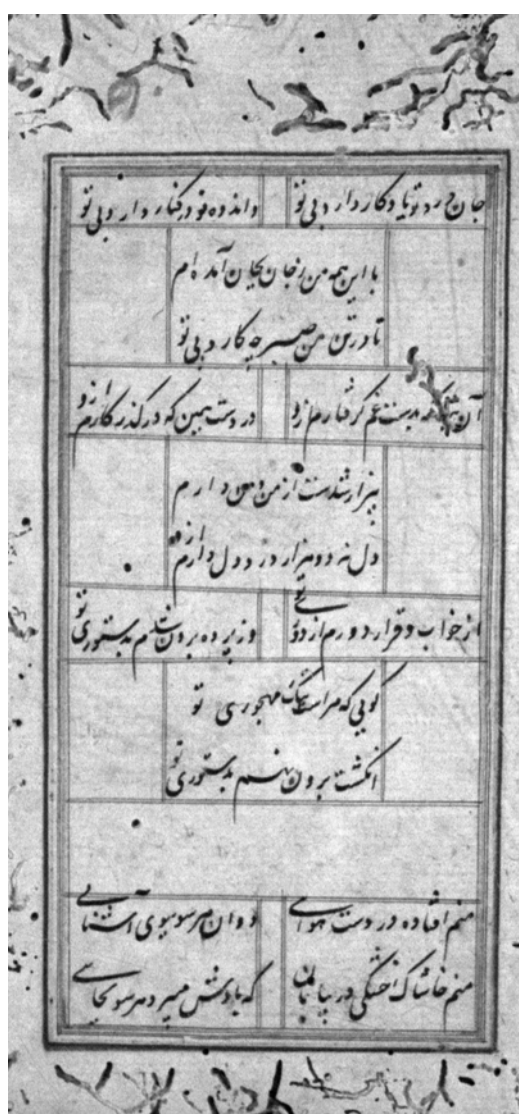 جان درد تو یادگار دارد بی تو
واندوه تو در کنار دارد بی تو
با این همه من ز جان بجان آمده ام
تا در تن من صبر چه کار دارد بی تو
آن که بدست غم گرفتارم ازو
در دست همین که درگذر کارم ازو
بیزار شدست از من و من دارم
دل نه و هزار درد دل دارم ازو
از خواب و قرار دورم از دوری تو
وز پرده برون بدستوری تو
گویی که مرا سنگ مهجوری تو
انگشت برون نهم بدستوری تو
منم افتاده در دست هوایی
دوان هر سو ببوی آشنایی
منم خاشاک خشکی در بیابان
که بادش میبرد هر سو بجایی